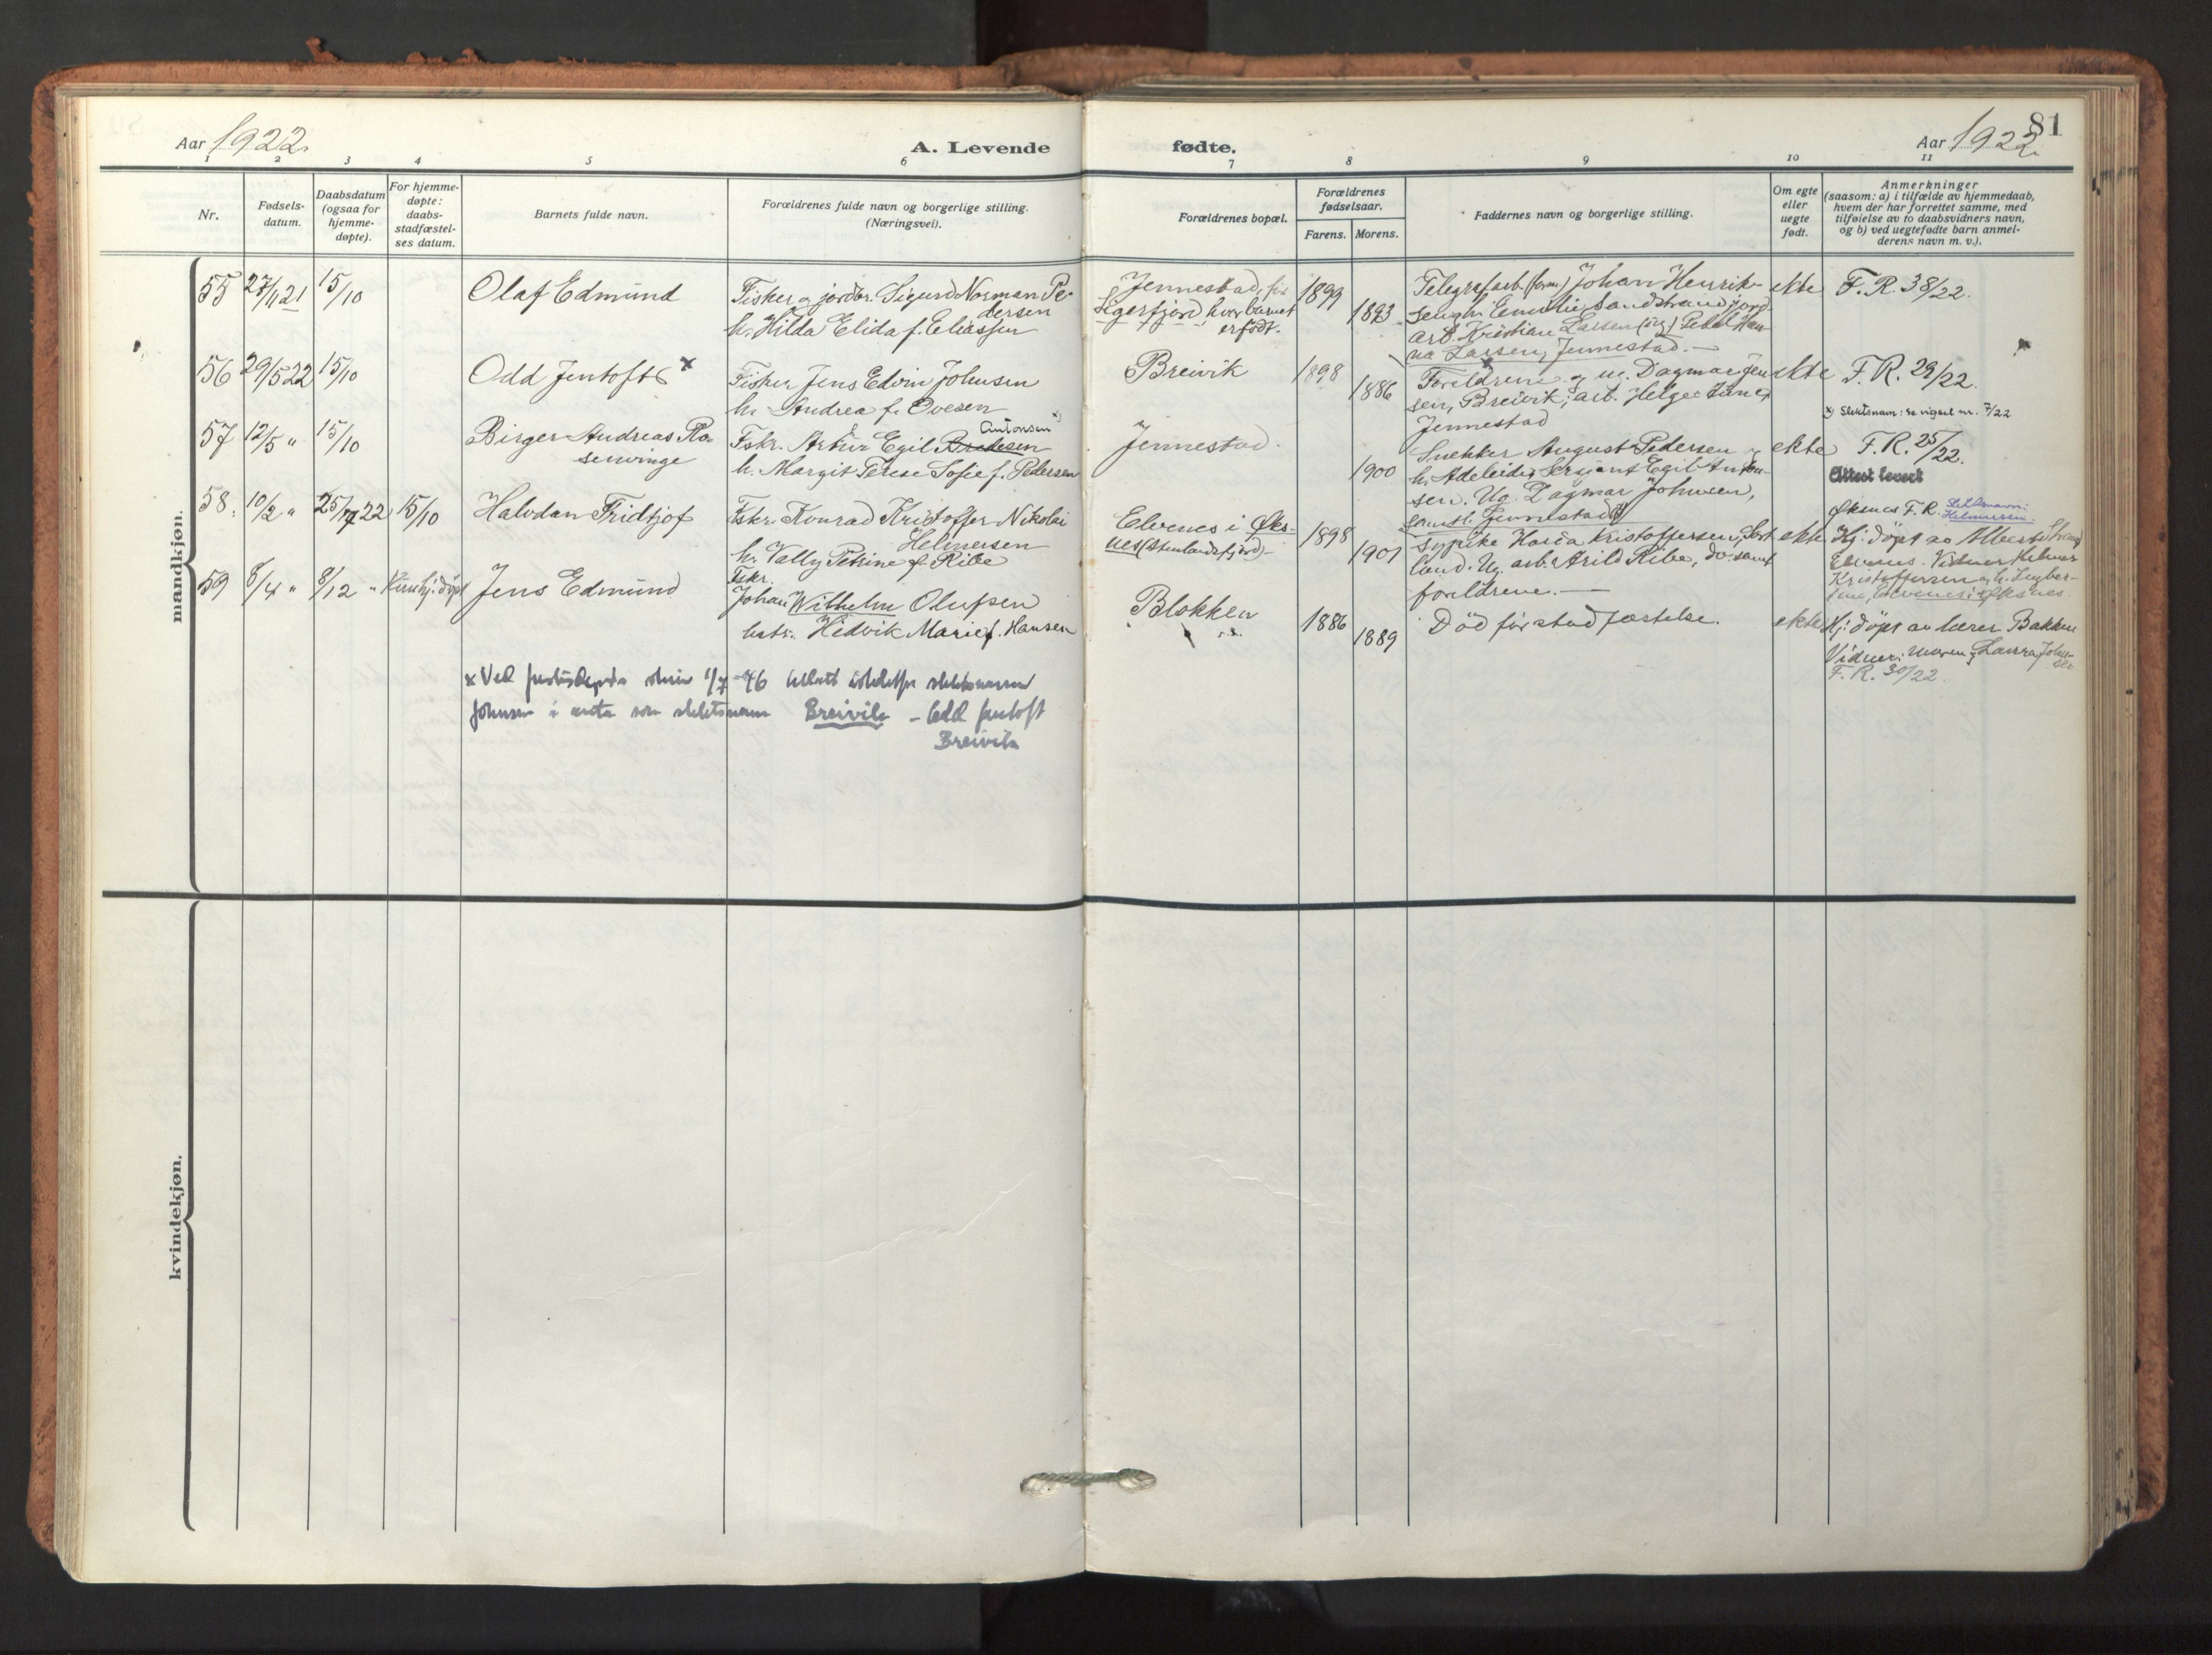 Aar 1922.
A. Levende
fødte.
Aar 1922.
81
1 2 3 4 5 6 7 8 9 10 11
Nr.
Fødsels-
datum.
Daabsdatum
(ogsaa for
hjemme-
døpte).
For hjemme-
døpte:
daabs-
stadfæstel-
ses datum.
Barnets fulde navn.
Forældrenes fulde navn og borgerlige stilling.
(Næringsvei).
Forældrenes bopæl.
Forældrenes
fødselsaar.
Farens. Morens.
Faddernes navn og borgerlige stilling.
Om egte
eller
uegte
født.
Anmerkninger
(saasom: a) i tilfælde av hjemmedaab,
hvem der har forrettet samme, med
tilføielse av to daabsvidners navn,
og b) ved uegtefødte barn anmel-
derens navn m. v.).
mandkjøn.
55 27/11 21 15/10
Olaf Edmund
Fisker og jordbr. Sigurd Norman Pe-
dersen
h. Hilda Elida f. Eliassen
Jennestad, før
Sigerfjord, hvor barnet
er født.
1899
1893
Telegrafarb. (form) Johan Henrik-
sen og h. Emelie, Sandstrand, jord-
arb. Kristian Larsen (ug) Han-
na Larsen, Jennestad.
ekte
F. R. 38/22.
56 29/5 22 15/10
Odd Jentoft x
Fisker Jens Edvin Johnsen
h. Andrea f. Ovesen
Breivik
1898
1886
Foreldrene og ug. Dagmar Jen-
sen, Breivik; arb. Helge
Jennestad
ekte
F. R. 29/22.
57 12/5 " 15/10
Birger Andreas Ro-
senvinge
Antonsen x)
Fskr. Artur Egil
h. Margit Terese Sofie f. Pedersen
Jennestad.
1900
Snekker August Pedersen og
h. Adeleide, Sersjant Egil Anton-
sen. Ug. Dagmar Johnsen,
samtl. Jennestad
ekte
x) Slektsnavn: se vigsel nr. 7/22
F. R. 25/22.
Attest levert
58. 10/2 " 25/7 22 15/10
Halvdan Fridtjof
Fskr. Konrad Kristoffer Nikolai
Helmersen
h. Vally Petrine f. Ribe
Elvenes i Øks-
nes
1898
1901
Sypike Harda Kristoffersen, Sort-
land. Ug. arb. Arild Ribe, do. samt
foreldrene.
ekte
Øksnes F. R.
Slektsnavn:
Helmersen.
Hj. døpt av Albert Strand
Elvenes. Vidner Helmer
Kristoffersen og h. Inber-
Elvenes i Øksnes.
59 8/4 " 8/12 " Kun hj. døpt
Jens Edmund
Fskr.
Johan Wilhelm Olufsen
hstr. Hedvik Marie f. Hansen
Blokken
1886
1889
Död för stadfæstelse.
ekte
Hj. døpt av lærer Bakken
Vidner: Maren og Laura John-
sen
F. R. 30/22.
x Ved 1/7 -46 tillatt istedetfor slektsnavnet
Johnsen å anta som slektsnavn Breivik – Odd Jentoft
Breivik
kvindekjøn.